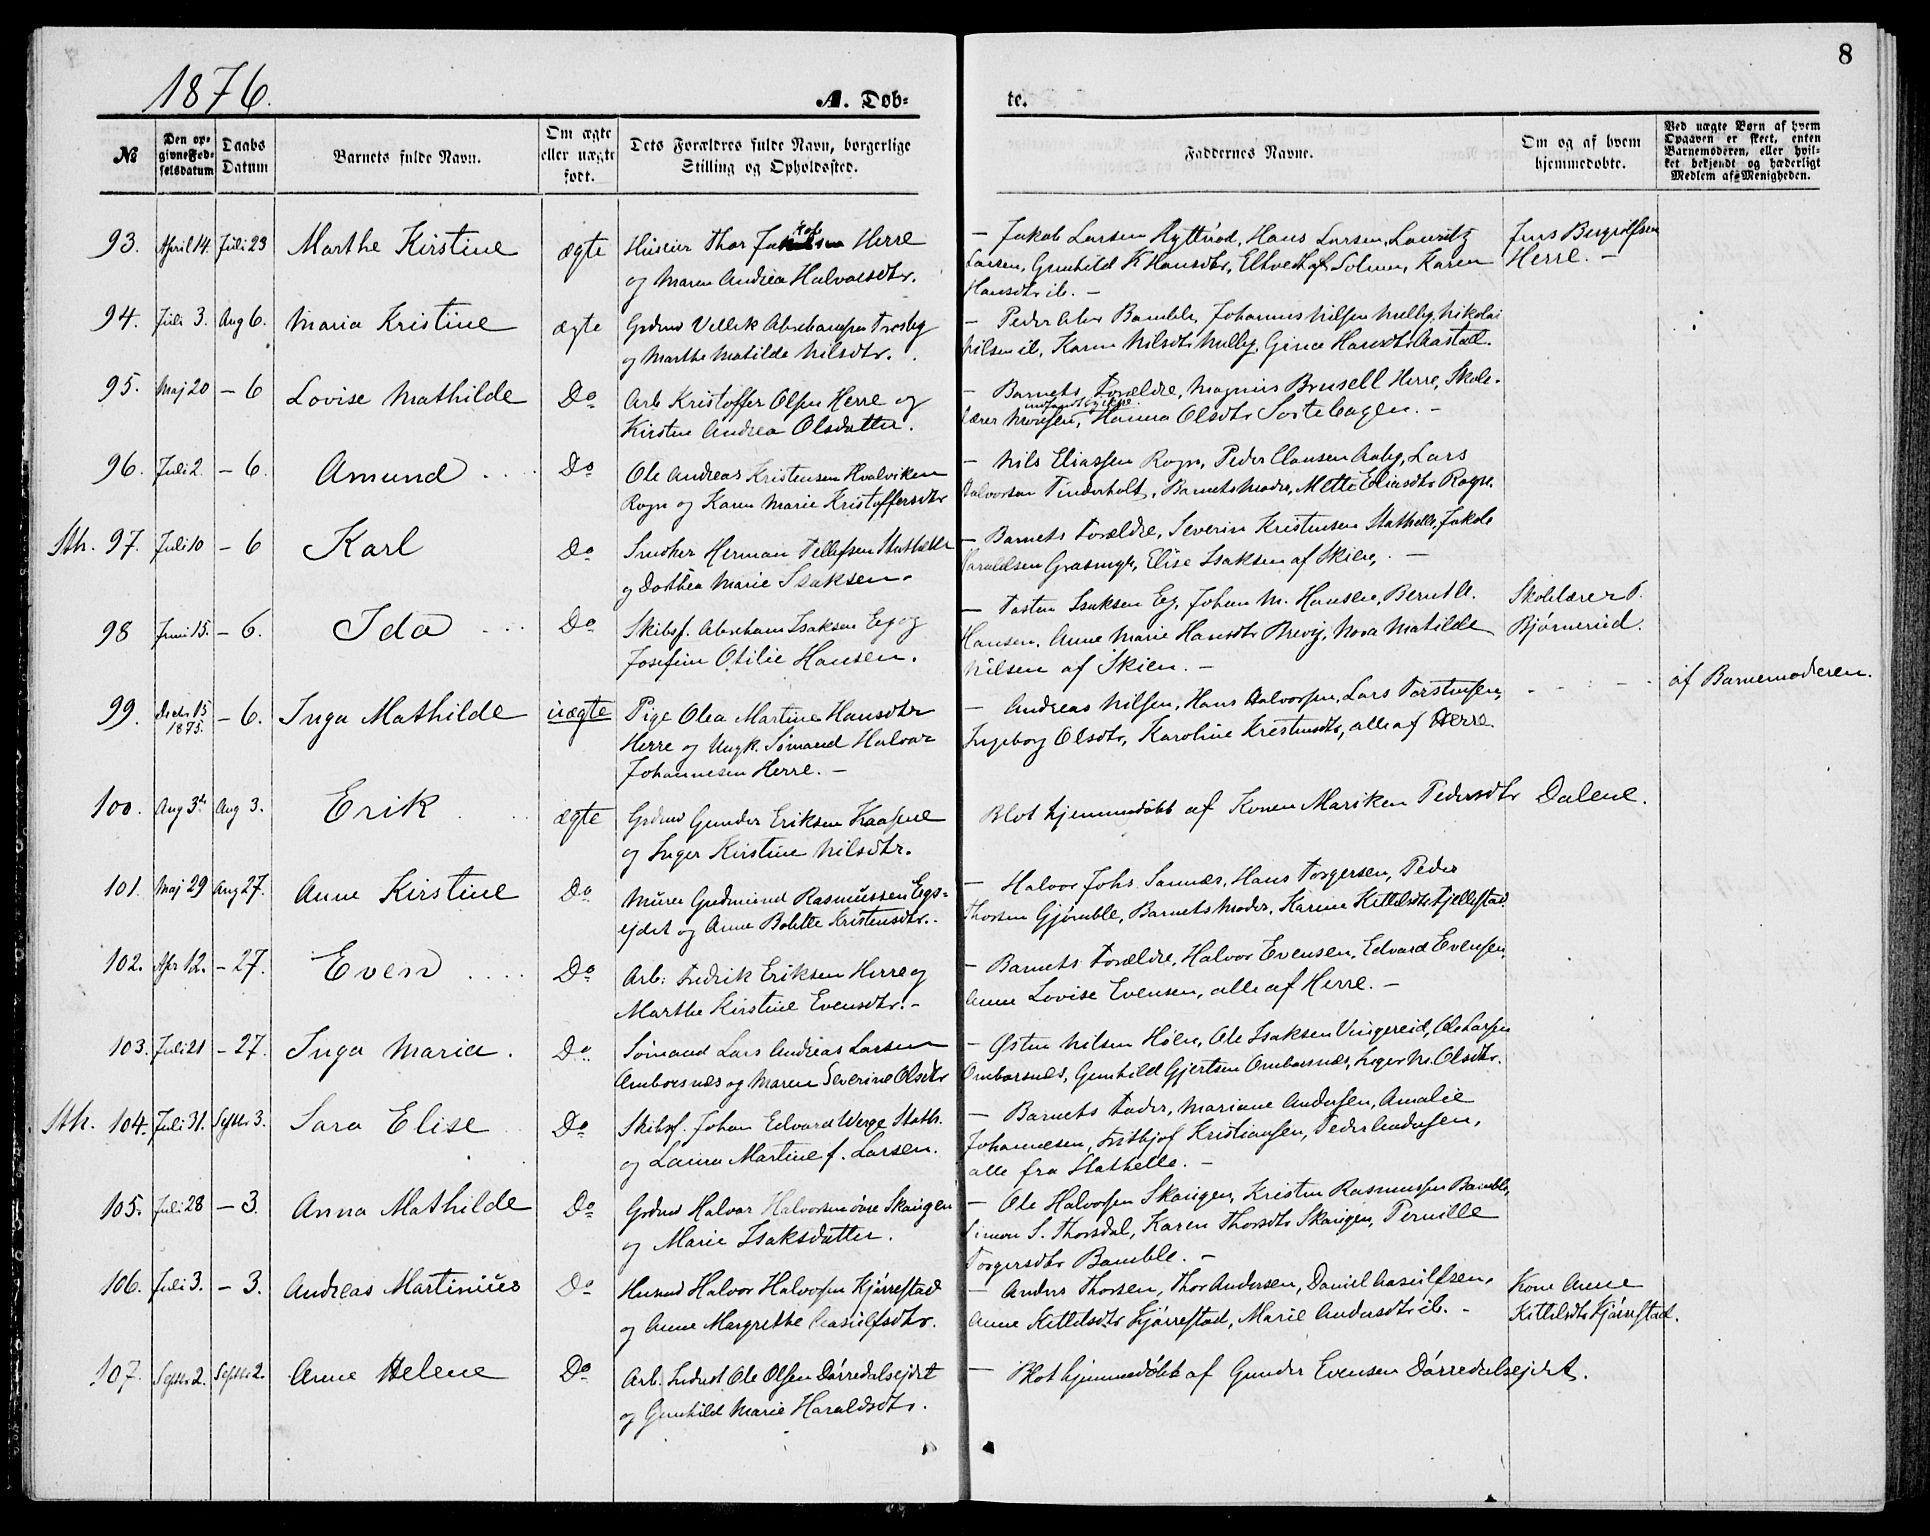 8
1876.
A. Døb-
te.
№
Den op-
givne Fød-
selsdatum
Daabs
Datum
Barnets fulde Navn.
Om ægte
eller uægte
født.
Dets Forældres fulde Navn, borgerlige
Stilling og Opholdssted.
Faddernes Navne.
Om og af hvem
hjemmedøbte.
Ved uægte Børn af hvem
Opgaven er skeet, enten
Barnemoderen, eller hvil-
ket bekjendt og hæderligt
Medlem af Menigheden.
93. April 14. Juli 23 Marthe Kirstine ægte Thor Herre
og Maren Andrea Halvorsdtr.
— Jakob Larsen Hytterød, Hans Larsen, Lauritz
Larsen, Gunhild K Hansdtr, af Solum, Karen
Hansdtr ib. —
Jens
Herre. —
94. Juli 3. Aug 6. Maria Kristine ægte Grdmd Vellik Abrahamsen Trosby
og Marthe Matilde Nilsdtr.
— Peder Bamble, Johannes Nilsen Melby, Nikolai
Nilsen ib, Karen Nilsdtr Melby, Gina Hansdtr Aastad.
95. Maj 20 — 6 Lovise Mathilde Do Arb Kristoffer Olsen Herre og
Kirsten Andrea Olsdatter.
— Barnets Forældre, Magnus Brusell Herre, Skole-
lærer Hanna Olsdtr Sortebogen. —
96. Juli 2 — 6. Amund Do Ole Andreas Kristensen Hvalviken
Rogn og Karen Marie Kristoffersdtr
— Nils Eliassen Rogn, Peder Clausen Aaby, Lars
Halvorsen Tinderholt, Barnets Moder, Mette Eliasdtr Rogn.
Sth. 97. Juli 10 — 6 Karl Do Snedker Herman Tellefsen Stathelle
og Dorthea Marie Isaksen.
— Barnets Forældre, Severin Kristensen Stathelle, Jakob
Haraldsen Grasmyr, Elise Isaksen af Skien, —
98 Juni 15. — 6. Ida Do Skibsf. Abraham Isaksen Eg og
Josefine Otilie Hansen.
— Tosten Isaksen Eg, Johan M. Hansen, Bernt
Hansen, Anne Marie Hansdtr Brevig, Nora Matilde
Nilsen af Skien. —
Skolelærer
Bjørnerud.
99. Decbr 15 1875. — 6. Inga Mathilde uægte Pige Olea Martine Hansdtr
Herre og Ungk. Sømand Halvor
Johannesen Herre. —
— Andreas Nilsen, Hans Halvorsen, Lars Torstensen,
Ingeborg Olsdtr, Karoline Kristensdtr, alle af Herre.
af Barnemoderen.
100. Aug 3de Aug 3. Erik ægte Grdmd Gunder Eriksen Kaasene
og Inger Kirstine Nilsdtr.
Blot hjemmedøbt af Konen Mariken Pedersdtr Dalene.
101. Maj 29 Aug 27. Anne Kirstine Do Murer Gudmund Rasmussen Eegs-
ejdet og Anne Bolette Kristensdtr.
— Halvor Johs. Sannæs, Hans Torgersen, Peder
Thorsen Gjømble, Barnets Moder, Karine Kittilsdtr Fjellestad.
102. Apr 12. — 27. Even Do Arb: Fredrik Eriksen Herre og
Marthe Kirstine Evensdtr. —
— Barnets Forældre, Halvor Evensen, Edvard Evensen,
Anne Lovise Evensen, alle af Herre. —
103. Juli 21 — 27. Inga Maria. Do Sømand Lars Andreas Larsen
Omborsnes og Maren Severine Olsdtr
— Østen Nilsen Høen, Ole Isaksen Vingereid, Ole Larsen
Ombarsnæs, Gunhild Gjertsen Ombarsnæs, Inger M. Olsdtr.
Sth. 104. Juli 31. Septbr 3. Sara Elise Do Skibsf. Johan Edvard Werge Stath.
og Laura Martine f. Larsen.
— Barnets Fader, Mariane Andersen, Amalie
Johannesen, Fritbjof Kristiansen, Peder Andersen,
alle fra Stathelle. —
105. Juli 28 — 3. Anna Mathilde Do Grdmd Halvor Halvorsen øvre Skougen
og Marie Isaksdatter.
— Ole Halvorsen Skougen, Kristen Rasmussen Bamble,
Simon S. Thorsdal, Karen Thorsdtr Skougen, Pernille
Torgersdtr Bamble. —
106. Juli 3. — 3. Andreas Martinius Do Husmd Halvor Halvorsen Kjørrestad
og Anne Margrethe Aasulfsdtr.
— Anders Thorsen, Thor Andersen, Daniel Aasulfsen,
Anne Kittilsdtr Kjørrestad, Marie Andersdtr ib. —
Kone Anne
Kittilsdtr Kjørrestad.
107. Septbr 2. Septbr 2. Anne Helene Do Arb. Ole Olsen Dørredalsejdet
og Gunhild Marie Haraldsdtr.
— Blot hjemmedøbt af Gunder Evensen Dørredalsejdet.